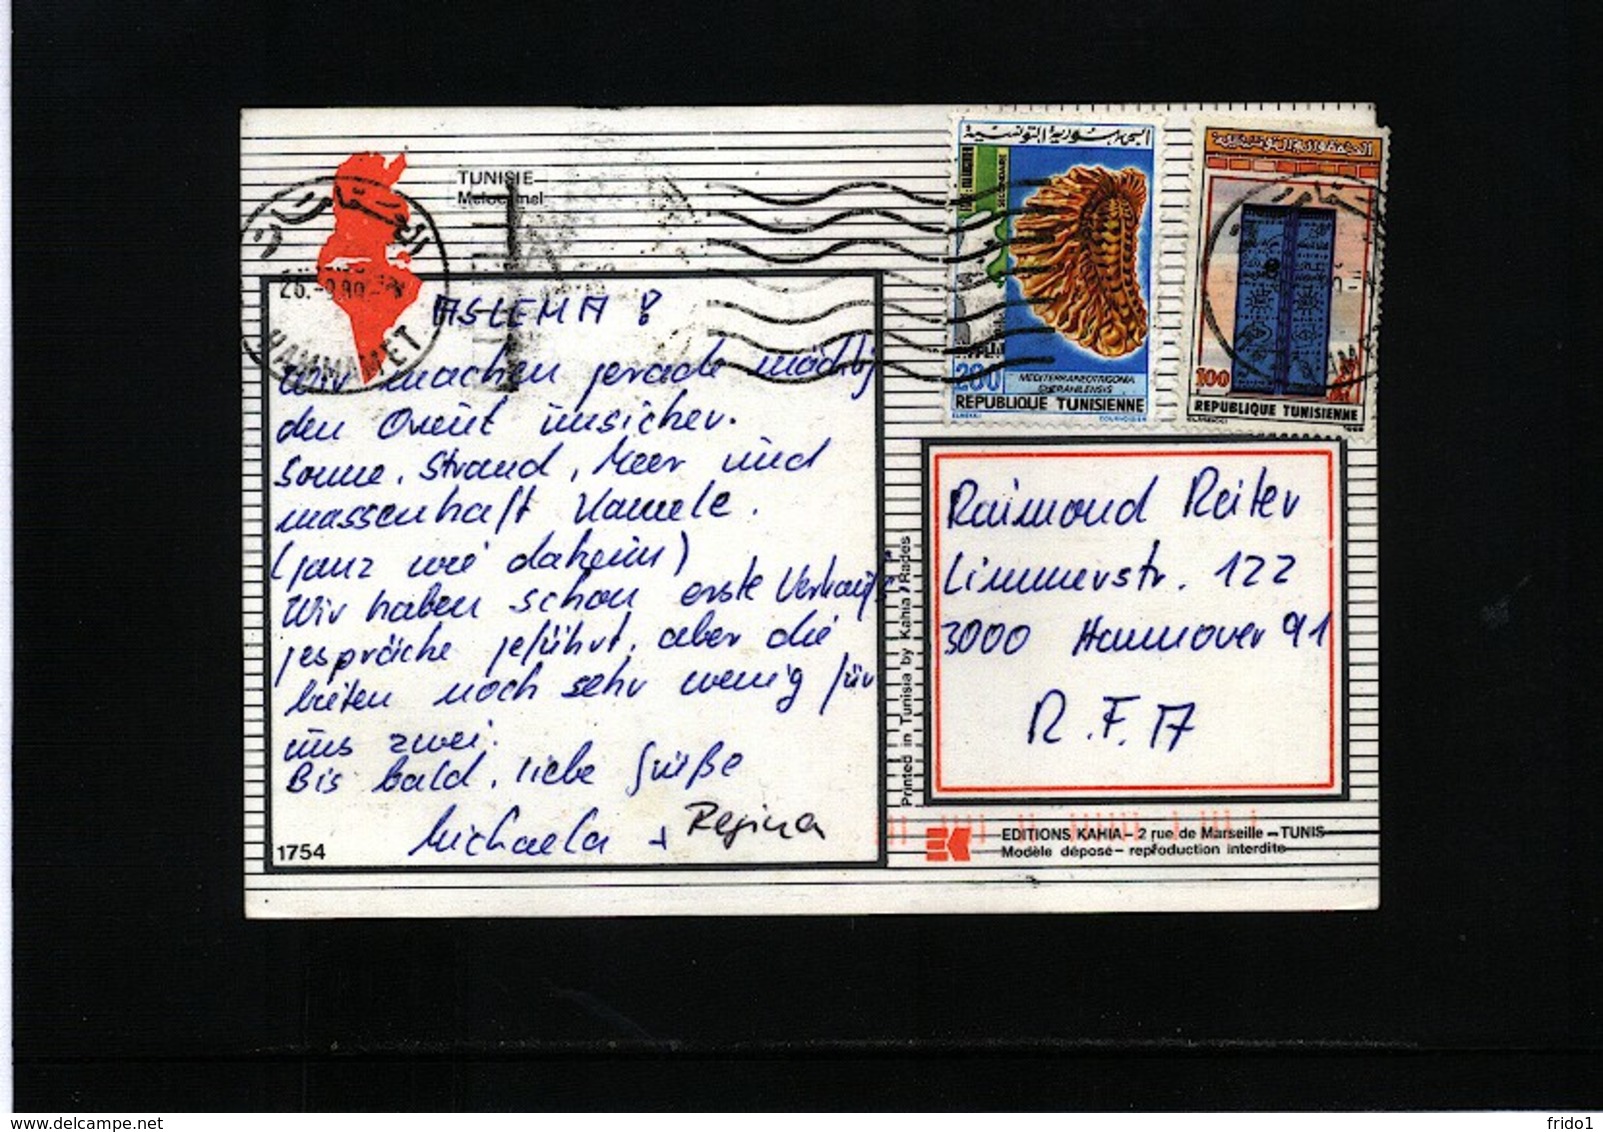 TUNISIE
25.-9.90
HAMMAMET
الجمهورية التونسية
200
MEDITERRANEOTRIGONIA
REPUBLIQUE TUNISIENNE
الجمهورية التونسية
100
REPUBLIQUE TUNISIENNE
ASLEMA !
Wir machen gerade mächtig
den Orient unsicher.
Sonne, Strand, Meer und
massenhaft Kamele.
(ganz wie daheim)
Wir haben schon erste Verkaufs-
gespräche geführt, aber die
bieten noch sehr wenig für
uns zwei.
Bis bald, liebe Grüße
Michaela + Regina
1754
Printed in Tunisia by Kahia / Rades
Raimond Reiter
Limmerstr. 122
3000 Hannover 91
R.F.A
EDITIONS KAHIA – 2 rue de Marseille – TUNIS
Modèle déposé – reproduction interdite
frido1
delcampe.net